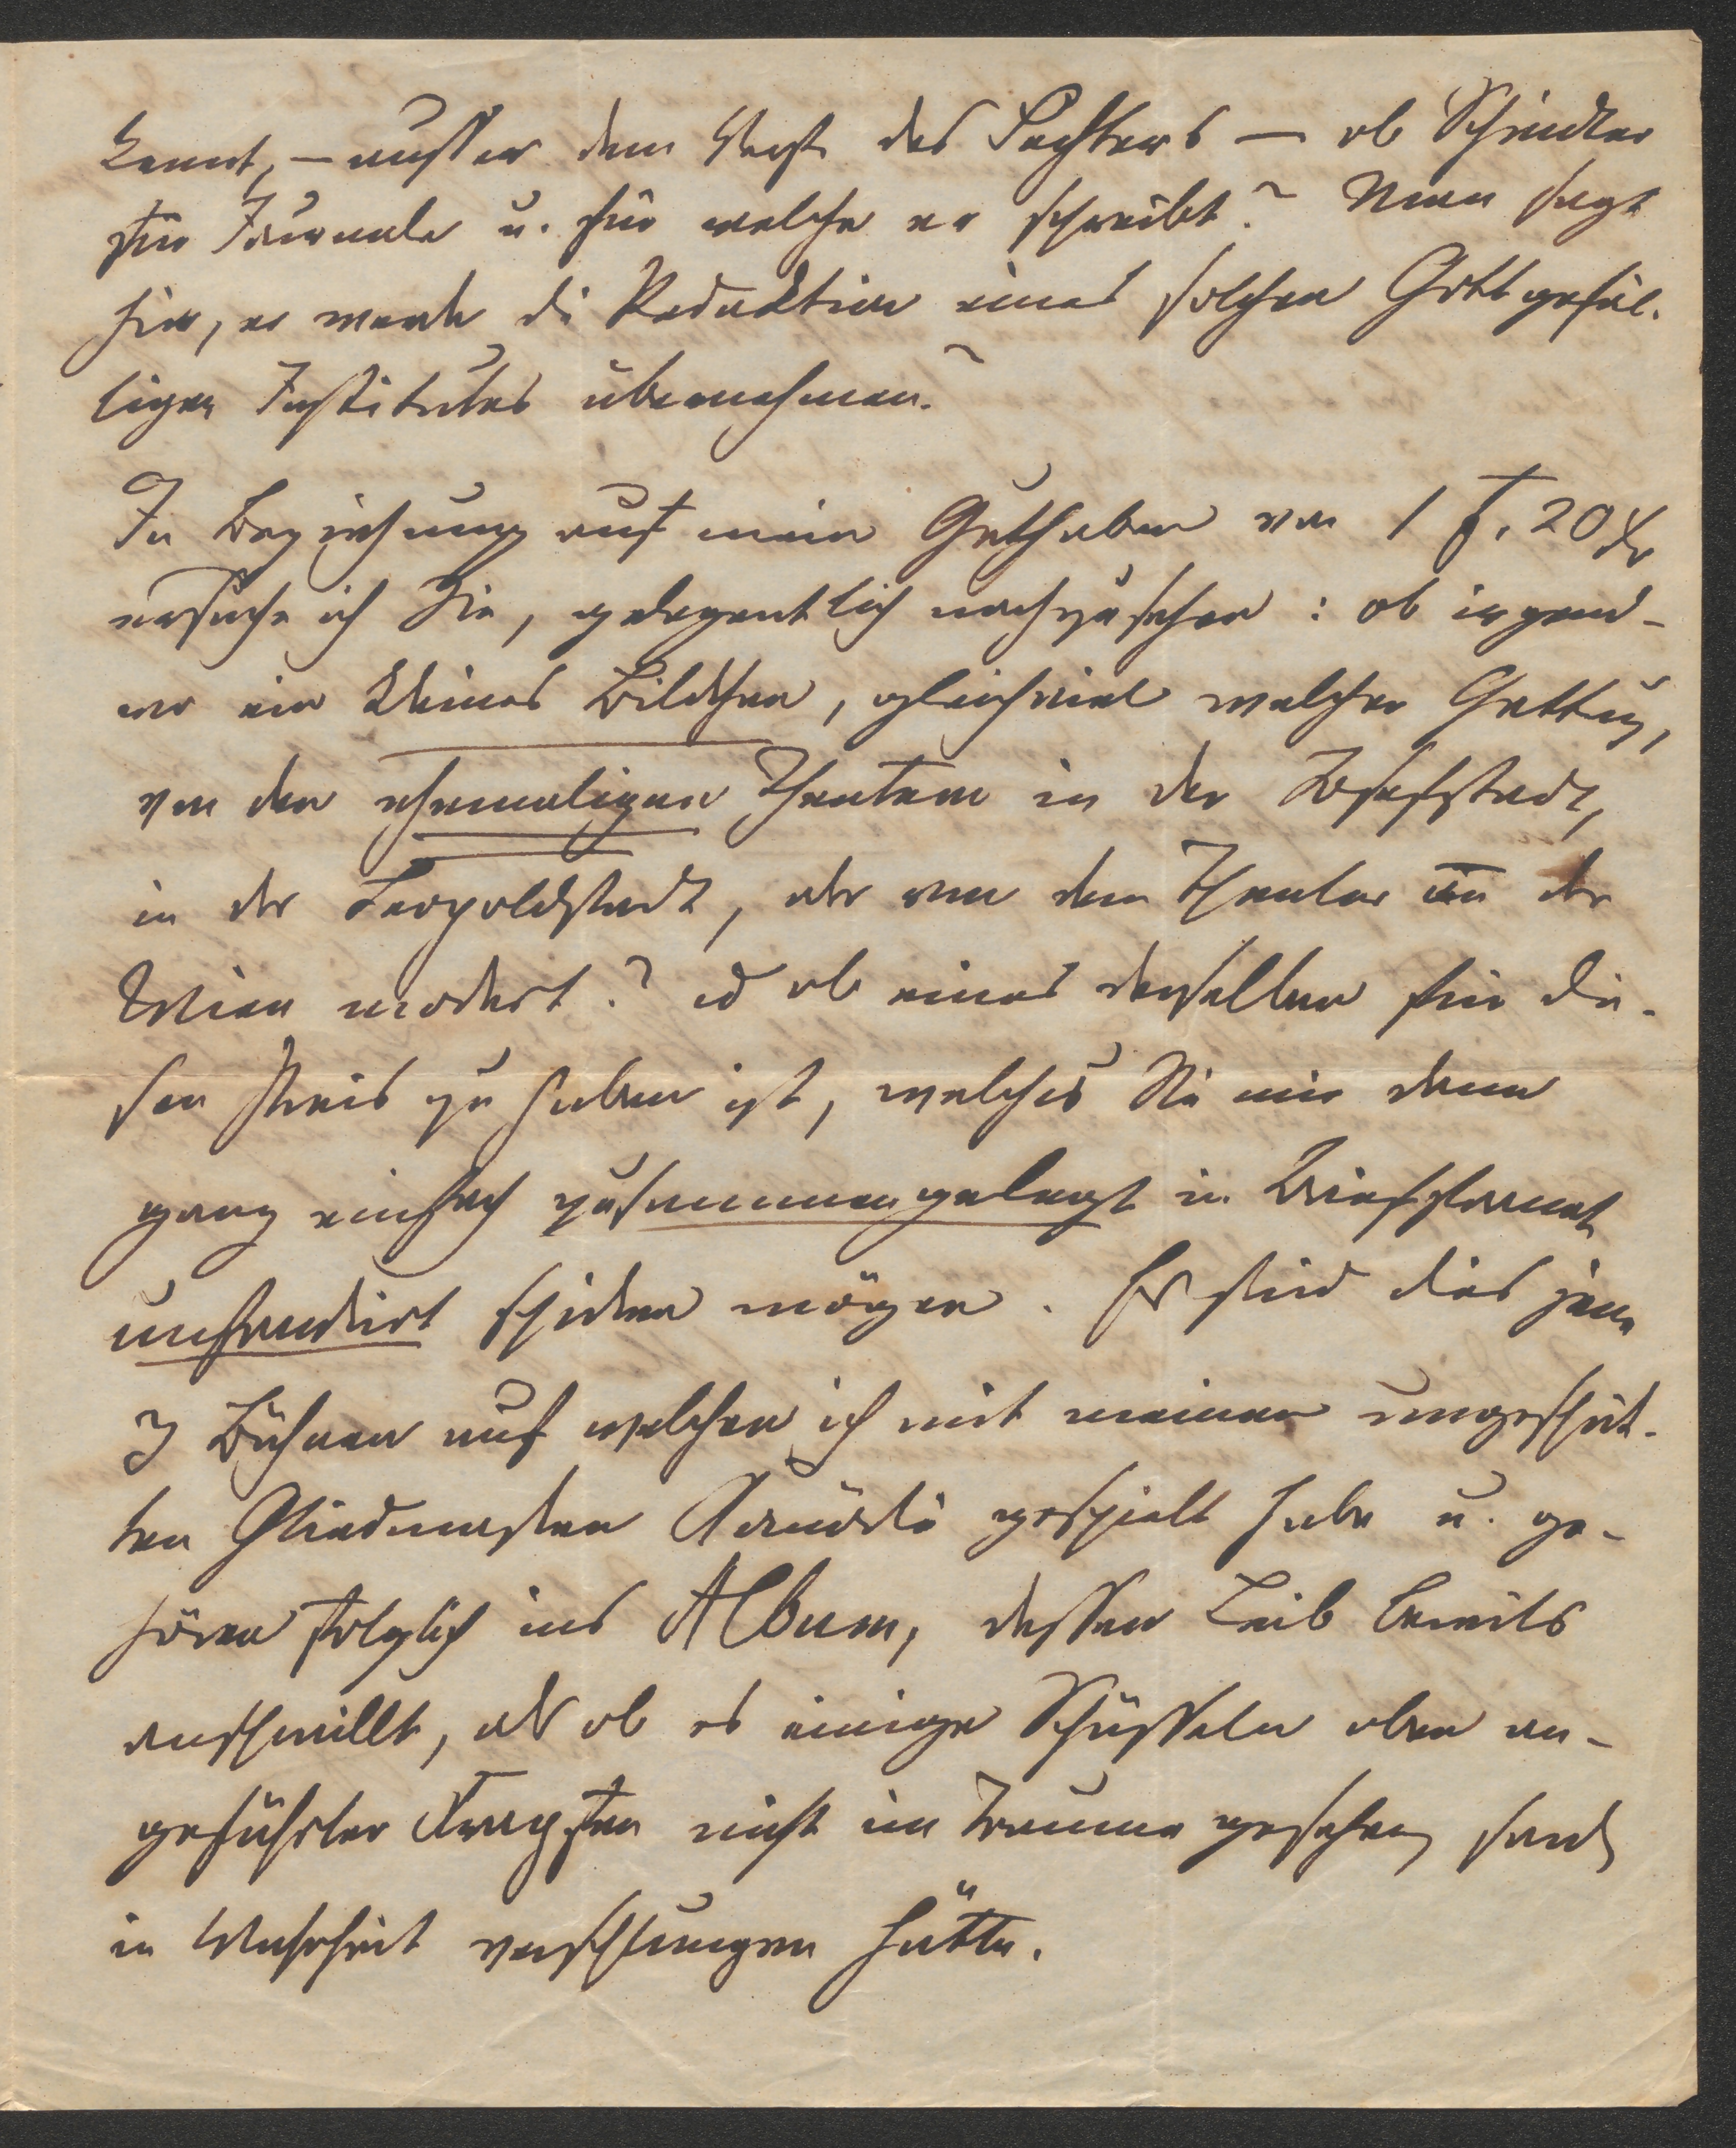 kennt, – ausser dem Werk des Sechters – ob Schindler
für Journale u. für welche er schreibt? Man sagt
hier, er werde die Redaktion eines solchen Gottgefäl-
ligen Institutes übernehmen?
In Beziehung auf mein Guthaben von 1 f. 20 Xr
ersuche ich Sie, gelegentlich nachzusehen: ob irgend-
wo ein kleines Bildchen, gleichviel welcher Gattung,
von den ehemaligen Theatern in der Josefstadt,
in der Leopoldstadt, oder von dem Theater an der
Wien modert? u ob eines derselben für die-
sen Preis zu haben ist, welches Sie mir dann
ganz einfach zusammengelegt in Briefformat
unfrankirt schicken mögen. Es sind dies jene
3 Bühnen auf welchen ich mit meinen ungeschik-
ten Gliedmassen Komödie gespielt habe u. ge-
hören folglich ins Album, dessen Leib bereits
anschwillt, als ob es einige Schüsseln oben an-
geführter nicht im Traume gesehen, sond
in Wahrheit verschlungen hätte.